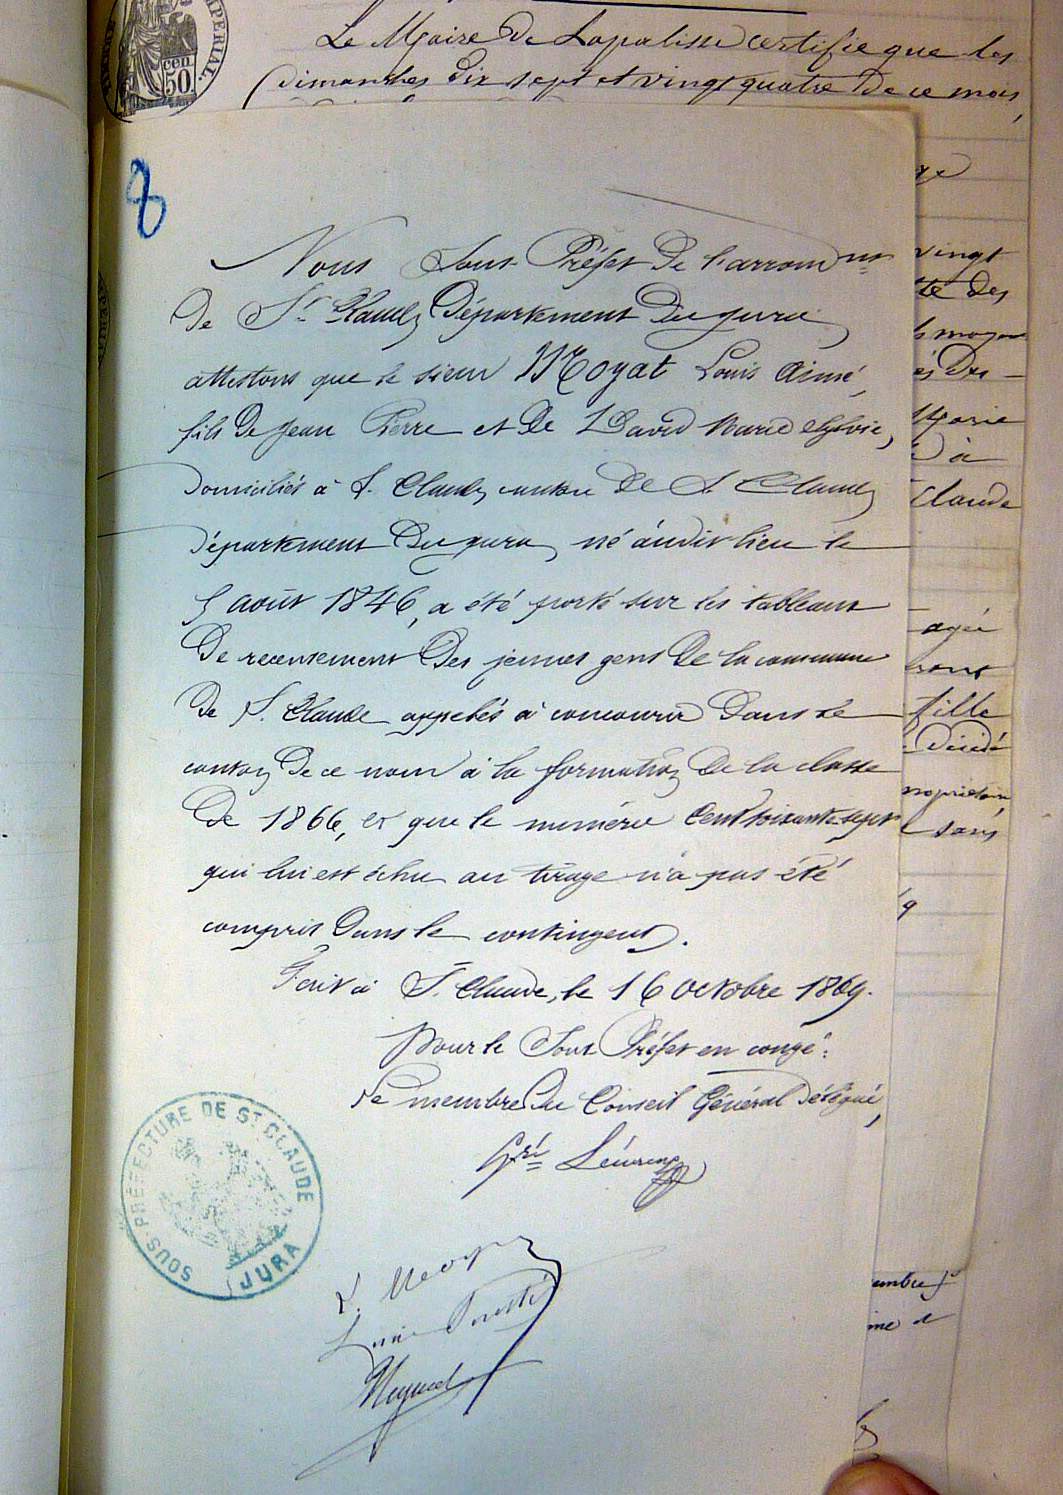 IMPERIAL.
50 cen
Le Maire de Lapalisse certifie que les
dimanches dix sept et vingt quatre de ce mois,
8
Nous Sous Préfet de l'arrond.nt
de St Claude, Département du Jura
attestons que le sieur Moyat Louis Aimé,
fils de Jean Pierre et de David Marie Sylvie,
domiciliés à St. Claude, canton de St. Claude,
Département du Jura, né audit lieu le
5 août 1846, a été porté sur les tableaux
de recensement des jeunes gens de la commune
de St. Claude appelés à concourir dans le
canton de ce nom à la formation de la classe
de 1866, et que le numéro Cent soixante sept
qui lui est échu au tirage n'a pas été
compris dans le contingent.
Fait à St. Claude, le 16 octobre 1869.
Pour le Sous Préfet en congé:
Le membre du Conseil Général délégué,
SOUS-PRÉFECTURE DE ST CLAUDE
(JURA)
vingt
te des
Marie
à
Claude
agée
fille
sans